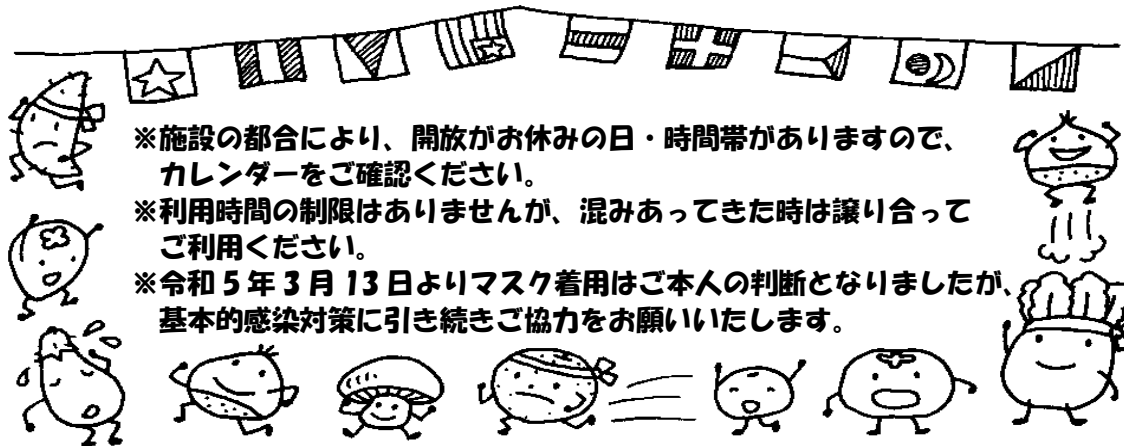 ※施設の都合により、開放がお休みの日・時間帯がありますので、
カレンダーをご確認ください。
※利用時間の制限はありませんが、混みあってきた時は譲り合って
ご利用ください。
※令和5年3月13日よりマスク着用はご本人の判断となりましたが、
基本的感染対策に引き続きご協力をお願いいたします。